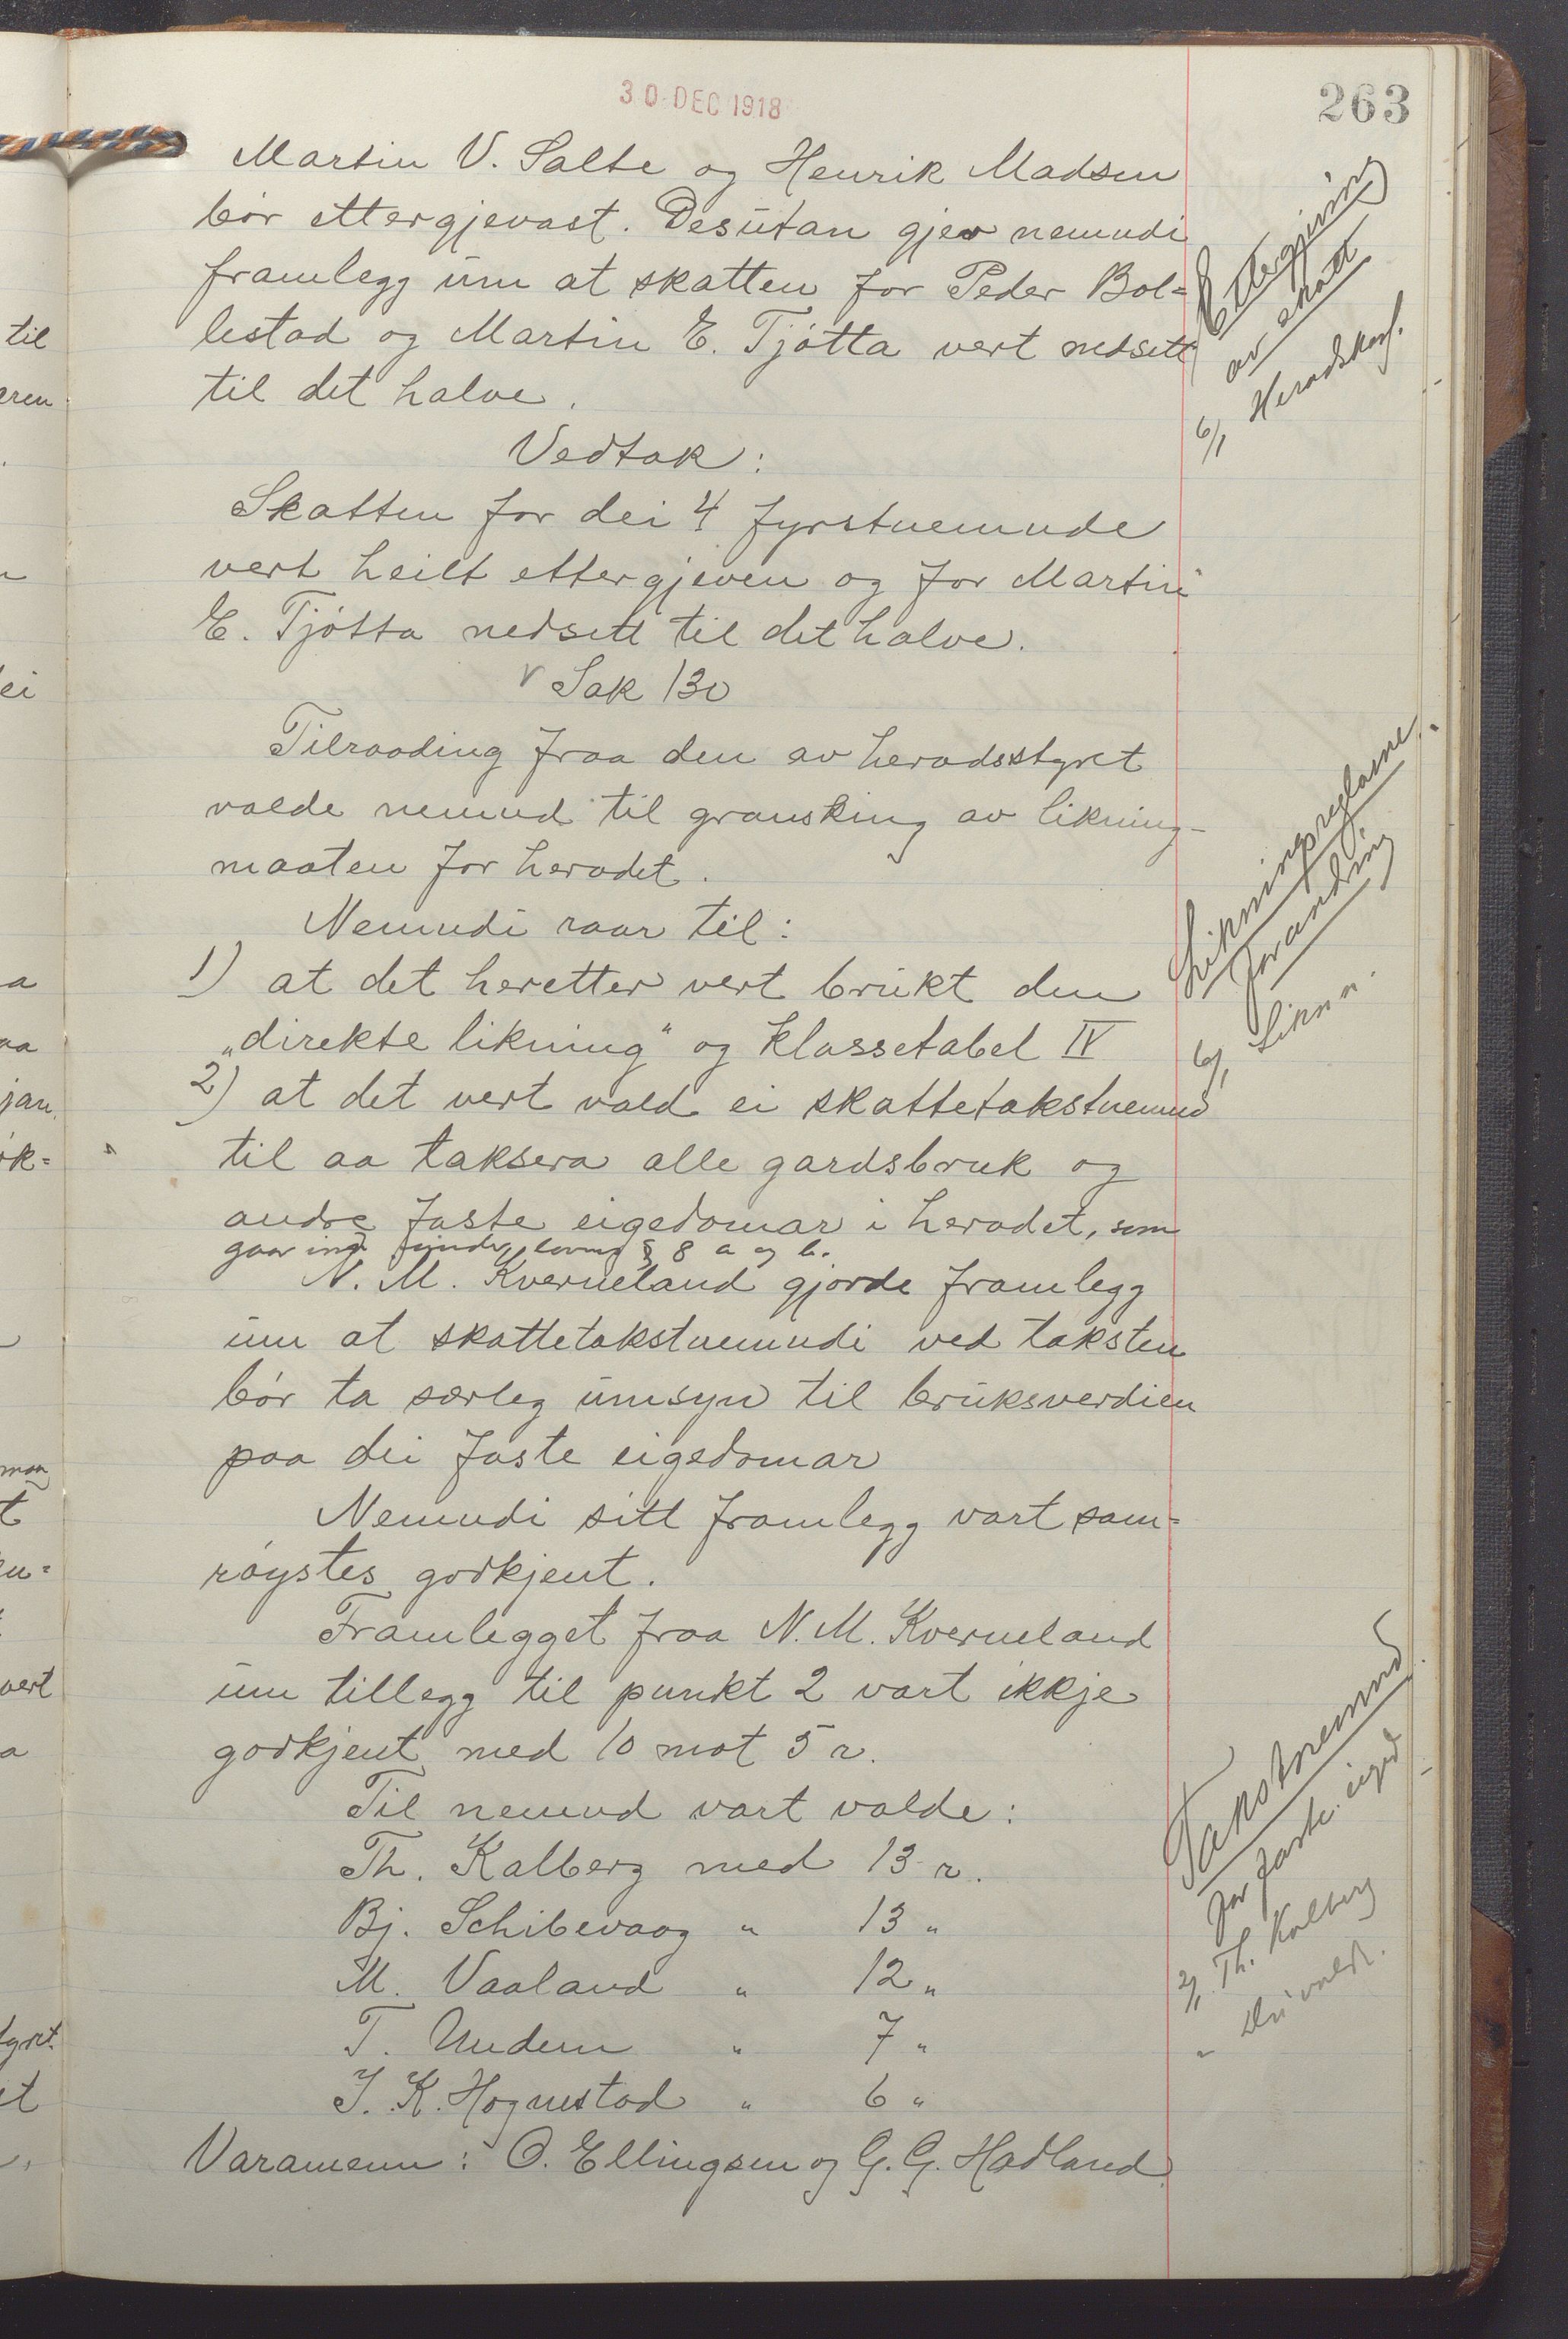 30 DEC 1918
263
Martin V. Salte og Henrik Madsen
bør ettergjevast. Desutan gjev nemndi
framlegg um at skatten for Peder Bol-
lestad og Martin E. Tjøtta vert nedsett
til det halve.
Ettergjeving
av skatt
6/1 Heradskass.
Vedtak:
Skatten for dei 4 fyrstnemnde
vert heilt ettergjeven og for Martin
E. Tjøtta nedsett til det halve.
Sak 130
Tilraading fraa den av heradsstyret
valde nemnd til gransking av likning-
maaten for heradet.
Nemndi raar til:
1) at det heretter vert brukt den
„direkte likning" og klassetabel IV
2) at det vert vald ei skattetakstnemnd
til aa taksera alle gardsbruk og
andre faste eigedomar i heradet, som
gaar inn under lovens § 8 a og b.
Likningsreglane,
forandring
6/1 Likn n.
N. M. Kverneland gjorde framlegg
um at skattetakstnemndi ved taksten
bør ta særleg umsyn til bruksverdien
paa dei faste eigedomar
Nemndi sitt framlegg vart sam-
røystes godkjent.
Framlegget fraa N. M. Kverneland
um tillegg til punkt 2 vart ikkje
godkjent med 10 mot 5 r.
Til nemnd vart valde:
Th. Kalberg med 13 r.
Bj. Schibevaag " 13 "
M. Vaaland " 12 "
T. Undem " 7 "
J. K. Hognestad " 6 "
Varamenn: O. Ellingsen og G. G. Hadland.
Takstnemnd
for faste eiged
2/1 Th. Kalberg
" Dei valde.